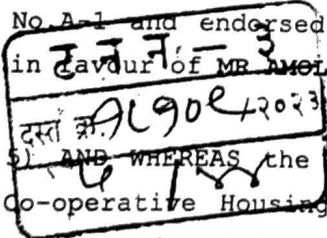 No.A-1 and endorsed
in favour of MR AMOL
ट न न - ३
दस्त क्र. /२०२३
5) AND WHEREAS the
Co-operative Housing